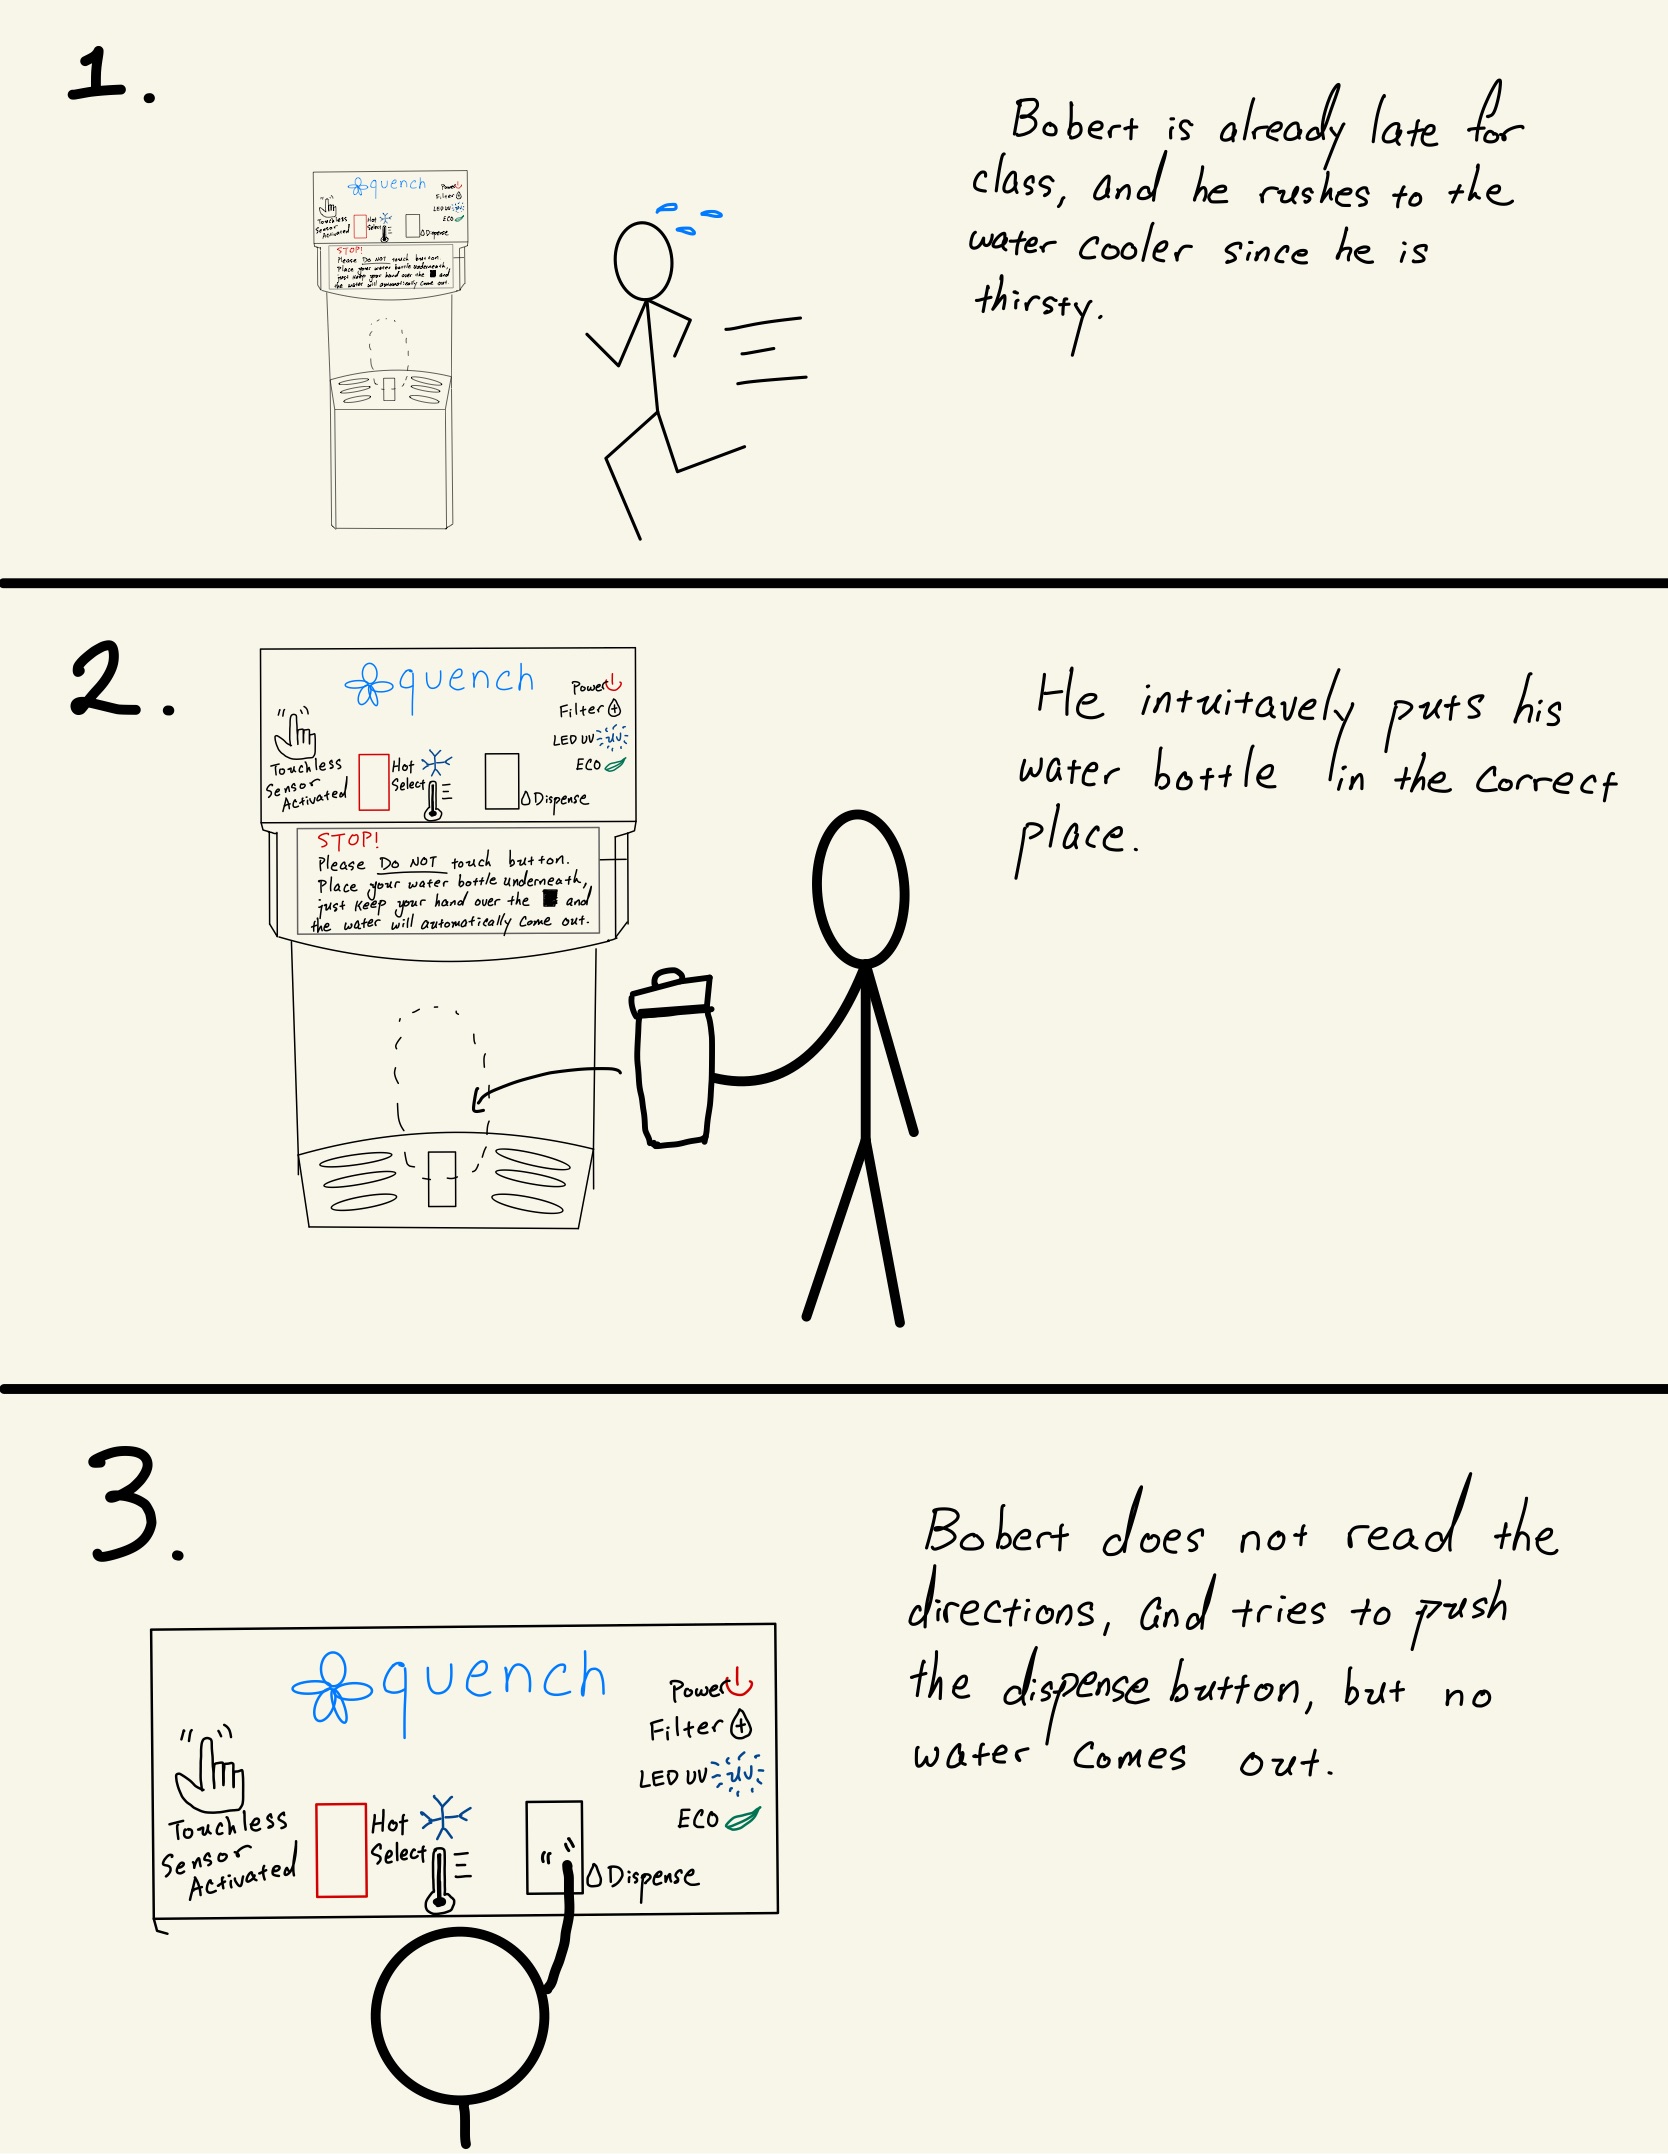 1.
quench
Power
Filter
LED UV
ECO
Touchless
Sensor
Activated
Hot
Select
Dispense
STOP!
Please DO NOT touch button.
Place your water bottle underneath,
just keep your hand over the and
the water will automatically come out.
Bobert is already late for
class, and he rushes to the
water cooler since he is
thirsty.
2.
quench
Power
Filter
LED UV UV
ECO
Touchless
Sensor
Activated
Hot
Select
Dispense
STOP!
Please DO NOT touch button.
Place your water bottle underneath,
just keep your hand over the and
the water will automatically come out.
He intuitavely puts his
water bottle in the correct
place.
3.
quench
Power
Filter
LED UV UV
ECO
Touchless
Sensor
Activated
Hot
Select
Dispense
Bobert does not read the
directions, and tries to push
the dispense button, but no
water comes out.